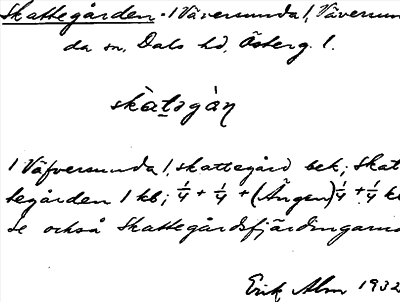 Skattegården - 1 Väversunda 1, Väversun
da sn, Dals hd, Österg. l.
skàtəgàn
1 Väfversunda 1, skattegård bek; Skat
tegården 1 kb; 1/4 + 1/4 + (Ängen) 1/4 + 1/4 k
Se också Skattegårdsfjärdingarna
Erik Alm 1932